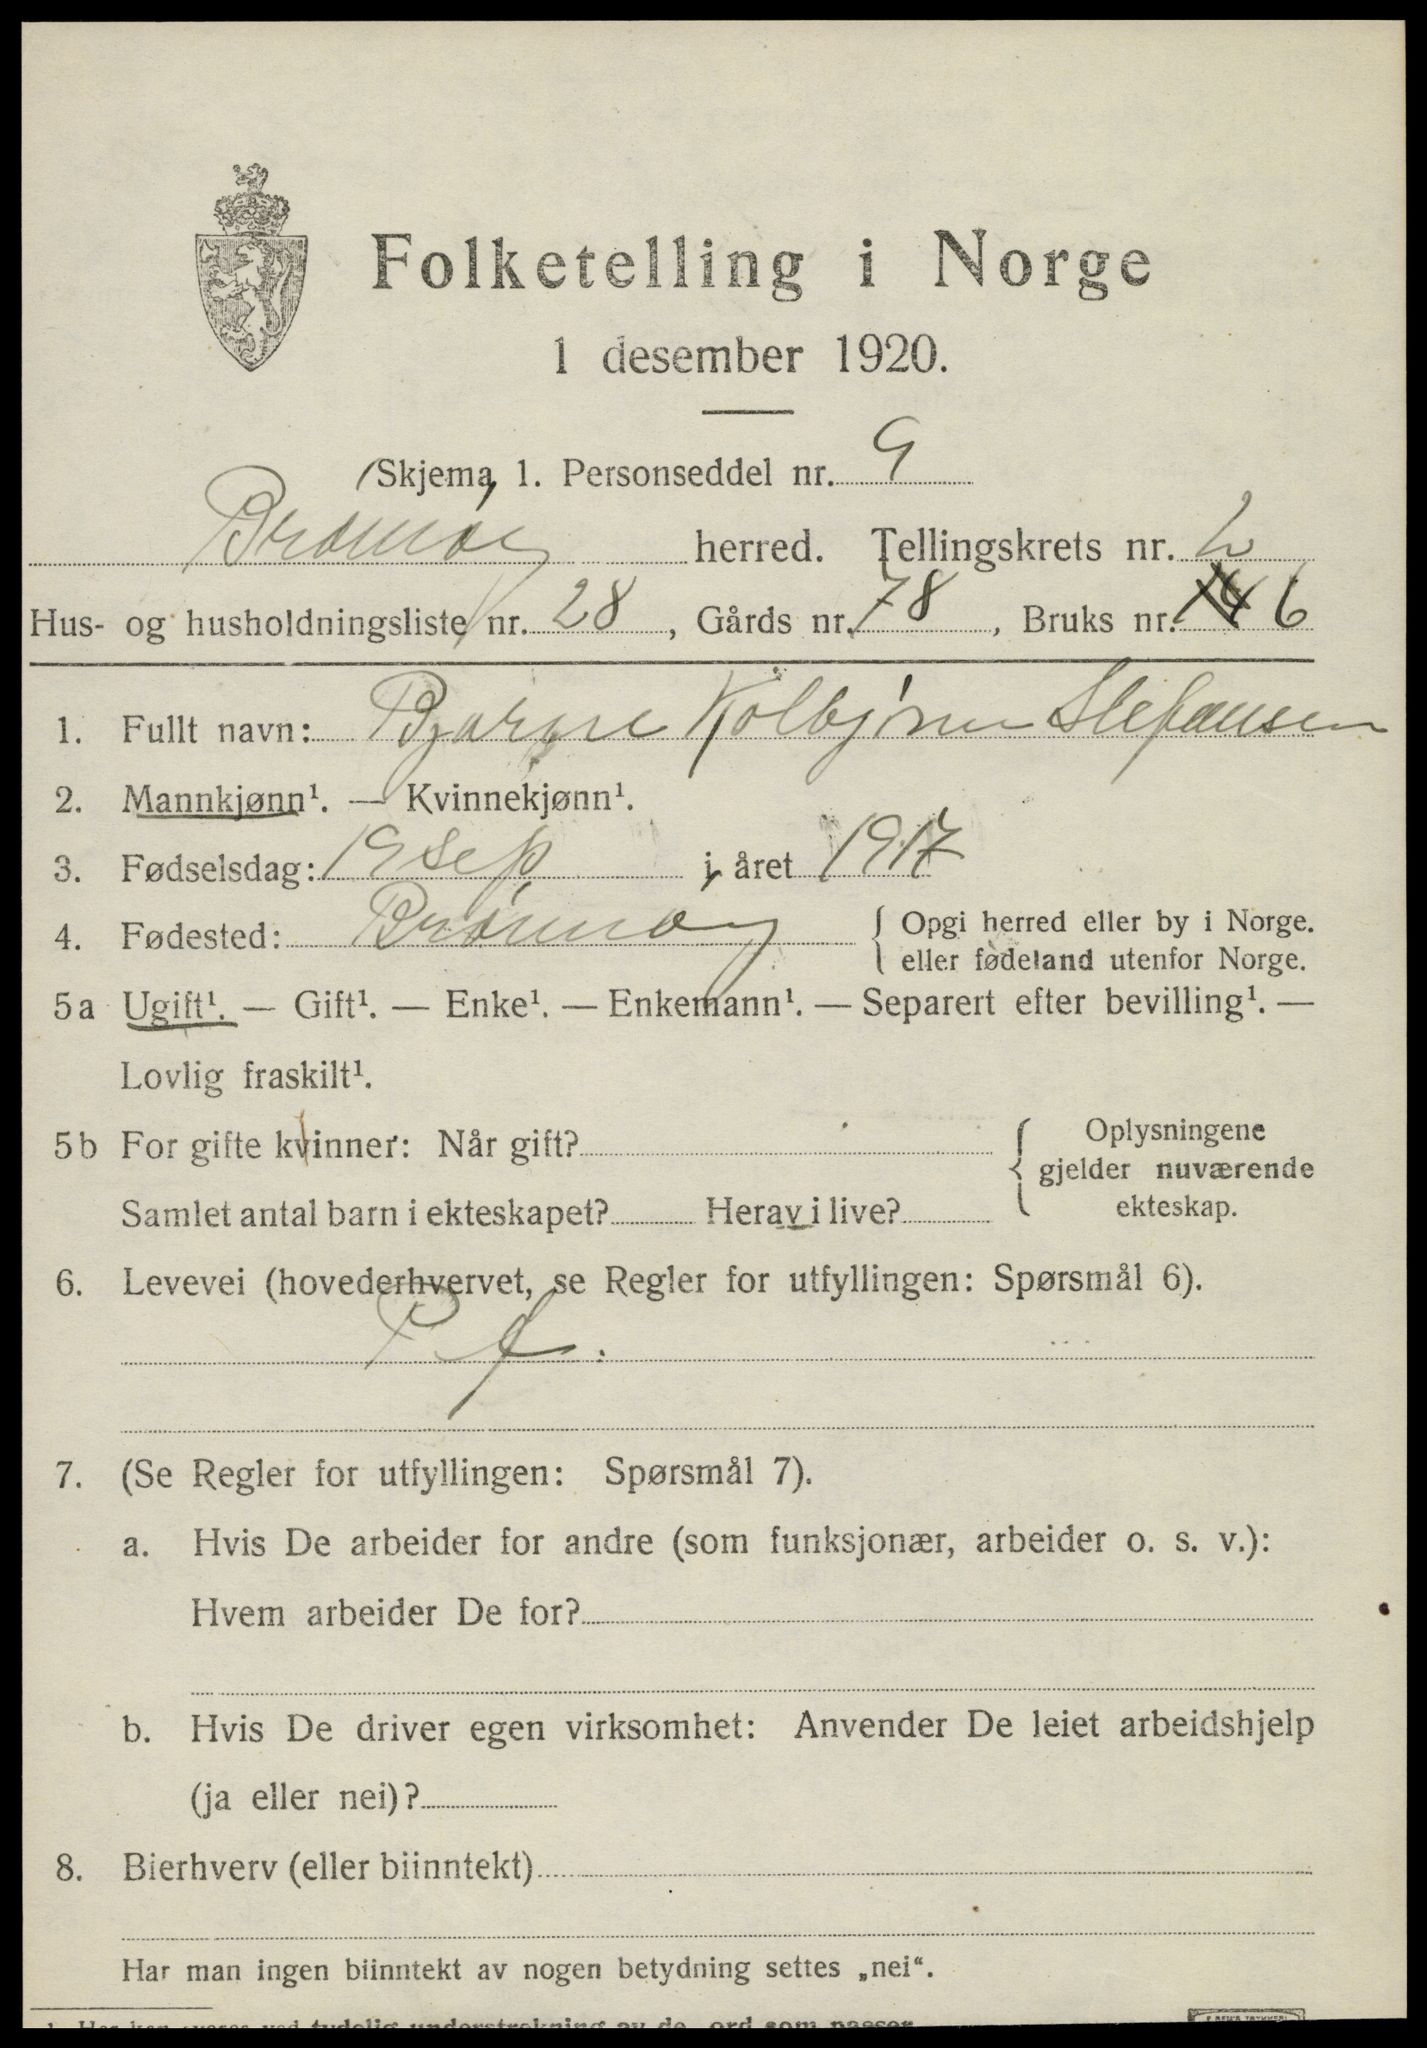 Folketelling i Norge
1 desember 1920.
Skjema 1. Personseddel nr. 9
Brønnøy herred. Tellingskrets nr. 2
Hus- og husholdningsliste nr. 28, Gårds nr. 78, Bruks nr. 6
1. Fullt navn: Bjarne Kolbjørn Stefansen
2. Mannkjønn¹. — Kvinnekjønn¹.
3. Fødselsdag: 19 sep i året 1917
4. Fødested: Brønnøy { Opgi herred eller by i Norge.
eller fødeland utenfor Norge.
5a Ugift¹. — Gift¹. — Enke¹. — Enkemann¹. — Separert efter bevilling¹. —
Lovlig fraskilt¹.
5b For gifte kvinner: Når gift? { Oplysningene
gjelder nuværende
Samlet antal barn i ekteskapet? Herav i live? ekteskap.
6. Levevei (hovederhvervet, se Regler for utfyllingen: Spørsmål 6).
7. (Se Regler for utfyllingen: Spørsmål 7).
a. Hvis De arbeider for andre (som funksjonær, arbeider o. s. v.):
Hvem arbeider De for?
b. Hvis De driver egen virksomhet: Anvender De leiet arbeidshjelp
(ja eller nei)?
8. Bierhverv (eller biinntekt)
Har man ingen biinntekt av nogen betydning settes „nei“.